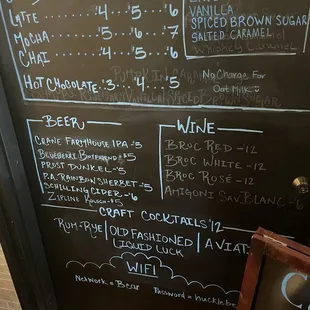 LATTE 4 5 6
MOCHA 5 6 7
CHAI 4 5 6
HOT CHOCOLATE 3 4 5
VANILLA
SPICED BROWN SUGAR
SALTED CARAMEL
No Change For
Oat Milk
BEER
CRANE FARMHOUSE IPA -5
BLUEBERRY BOYFRIEND -5
PROST DUNKEL -5
P.A. RAINBOW SHERBET -5
SCHILLING CIDER -6
ZIPLINE -5
WINE
BROC RED -12
BROC WHITE -12
BROC ROSÉ -12
AMIGONI SAV BLANC -6
CRAFT COCKTAILS $12
RUM-RYE / OLD FASHIONED / AVIAT
LIQUID LUCK
WIFI
Network = Bear Password = huckle